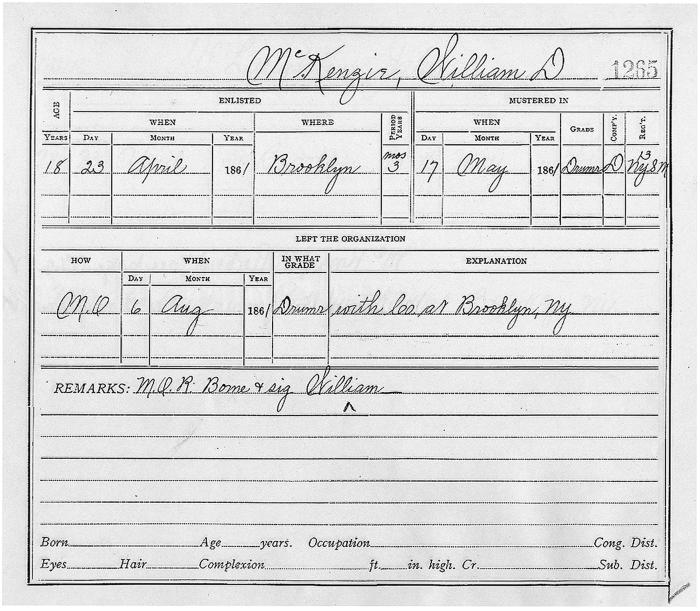 McKenzie, William D 1265
AGE ENLISTED MUSTERED IN
WHEN WHERE PERIOD YEARS WHEN GRADE COMP'Y. REG'T.
YEARS DAY MONTH YEAR DAY MONTH YEAR
18 23 April 1861 Brooklyn mos 3 17 May 1861 Drumr D 13 NYSM
LEFT THE ORGANIZATION
HOW WHEN IN WHAT GRADE EXPLANATION
DAY MONTH YEAR
M.O 6 Aug 1861 Drumr with Co. at Brooklyn, Ny
REMARKS: M.O.R. Borne & sig William
^
Born Age years. Occupation Cong. Dist.
Eyes Hair Complexion ft. in. high. Cr. Sub. Dist.